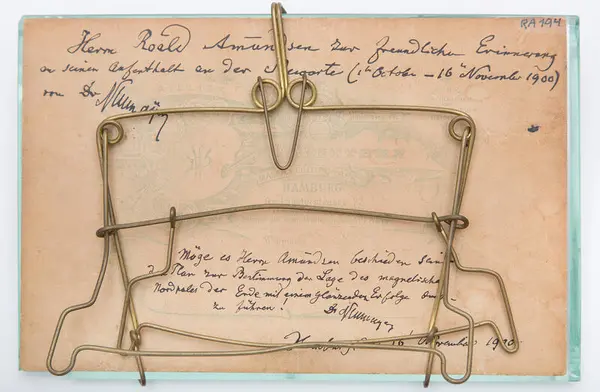 RA 194
Herrn Roald Amundsen zur freundlichen Erinnerung
an seinen Aufenthalt an der Seewarte (1ten October – 16ten November 1900)
von Dr Neumayer
HAMBURG
Möge es Herrn Amundsen beschieden sein
Plan zur Bestimmung der Lage des magnetischen
Nordpoles der Erde mit einem glänzenden Erfolge
zu führen.
Dr Neumayer
Hamburg 16 November 1900